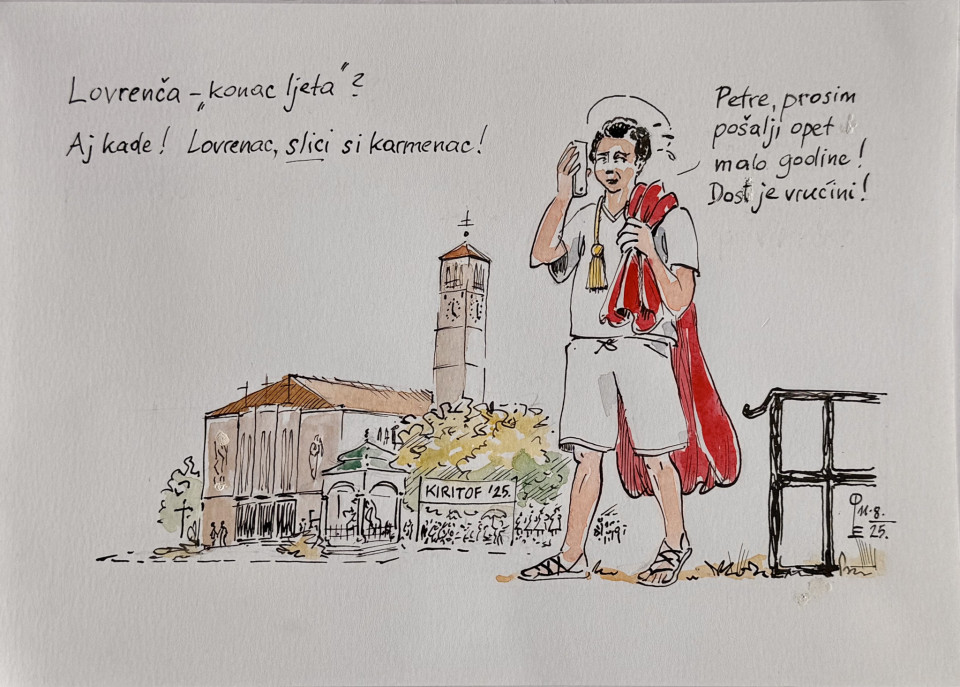 Lovrenča - „konac ljeta"?
Aj kade! Lovrenac, slici si karmenac!
Petre, prosim
pošalji opet
malo godine!
Dost je vrućini!
KIRITOF '25.
11.8.
25.